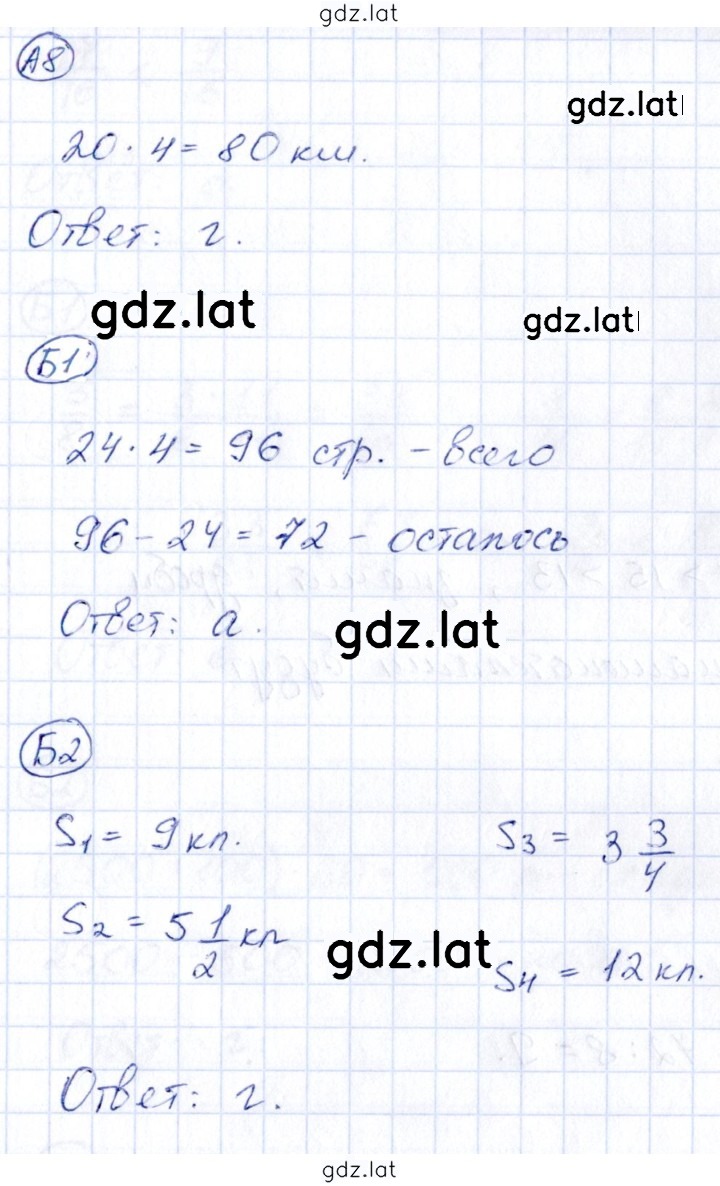 gdz.lat
А8
gdz.lat
20 · 4 = 80 км.
Ответ: г.
gdz.lat
gdz.lat
Б1
24 · 4 = 96 стр. - всего
96 - 24 = 72 - осталось
Ответ: а.
gdz.lat
Б2
S₁ = 9 кл.
S₃ = 3 3/4
S₂ = 5 1/2 кл
gdz.lat
S₄ = 12 кл.
Ответ: г.
gdz.lat